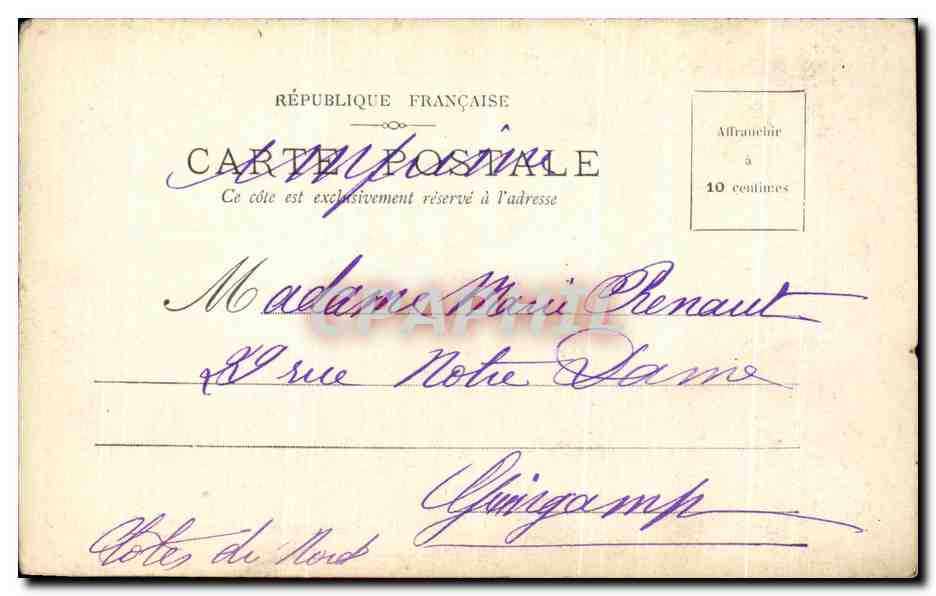 RÉPUBLIQUE FRANÇAISE
CARTE POSTALE
Ce côte est exclusivement réservé à l'adresse
Affranchir
à
10 centimes
Madame Marie Phenaut
29 rue Notre Dame
Guingamp
Côtes du Nord
CPAPHIL